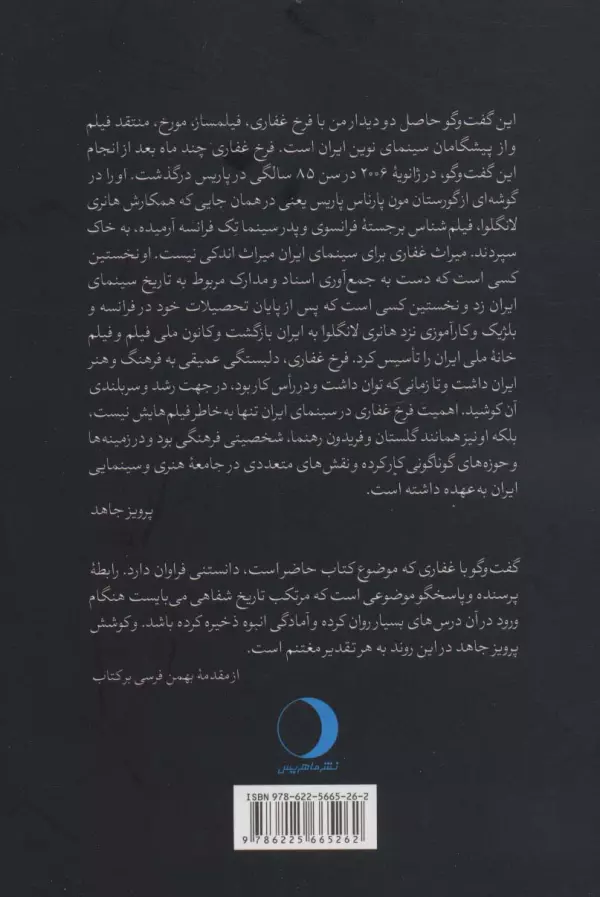 این گفت‌وگو حاصل دو دیدار من با فرخ غفاری، فیلمساز، مورخ، منتقد فیلم
و از پیشگامان سینمای نوین ایران است. فرخ غفاری چند ماه بعد از انجام
این گفت‌وگو، در ژانویهٔ ۲۰۰۶ در سن ۸۵ سالگی در پاریس درگذشت. او را در
گوشه‌ای از گورستان مون پارناس پاریس یعنی در همان جایی که همکارش هانری
لانگلوا، فیلم شناس برجستهٔ فرانسوی و پدر سینما تِک فرانسه آرمیده، به خاک
سپردند. میراث غفاری برای سینمای ایران میراث اندکی نیست. او نخستین
کسی است که دست به جمع‌آوری اسناد و مدارک مربوط به تاریخ سینمای
ایران زد و نخستین کسی است که پس از پایان تحصیلات خود در فرانسه و
بلژیک و کارآموزی نزد هانری لانگلوا به ایران بازگشت و کانون ملی فیلم و فیلم
خانهٔ ملی ایران را تأسیس کرد. فرخ غفاری، دلبستگی عمیقی به فرهنگ و هنر
ایران داشت و تا زمانی‌که توان داشت و در رأس کار بود، در جهت رشد و سربلندی
آن کوشید. اهمیت فرخ غفاری در سینمای ایران تنها به خاطر فیلم‌هایش نیست،
بلکه او نیز همانند گلستان و فریدون رهنما، شخصیتی فرهنگی بود و در زمینه‌ها
و حوزه‌های گوناگونی کار کرده و نقش‌های متعددی در جامعهٔ هنری و سینمایی
ایران به عهده داشته است.
پرویز جاهد
گفت‌وگو با غفاری که موضوع کتاب حاضر است، دانستنی فراوان دارد. رابطهٔ
پرسنده و پاسخگو موضوعی است که مرتکب تاریخ شفاهی می‌بایست هنگام
ورود در آن درس‌های بسیار روان کرده و آمادگی انبوه ذخیره کرده باشد. و کوشش
پرویز جاهد در این روند به هر تقدیر مغتنم است.
از مقدمهٔ بهمن فرسی بر کتاب
نشر ماهریس
ISBN 978-622-5665-26-2
9 786225 665262